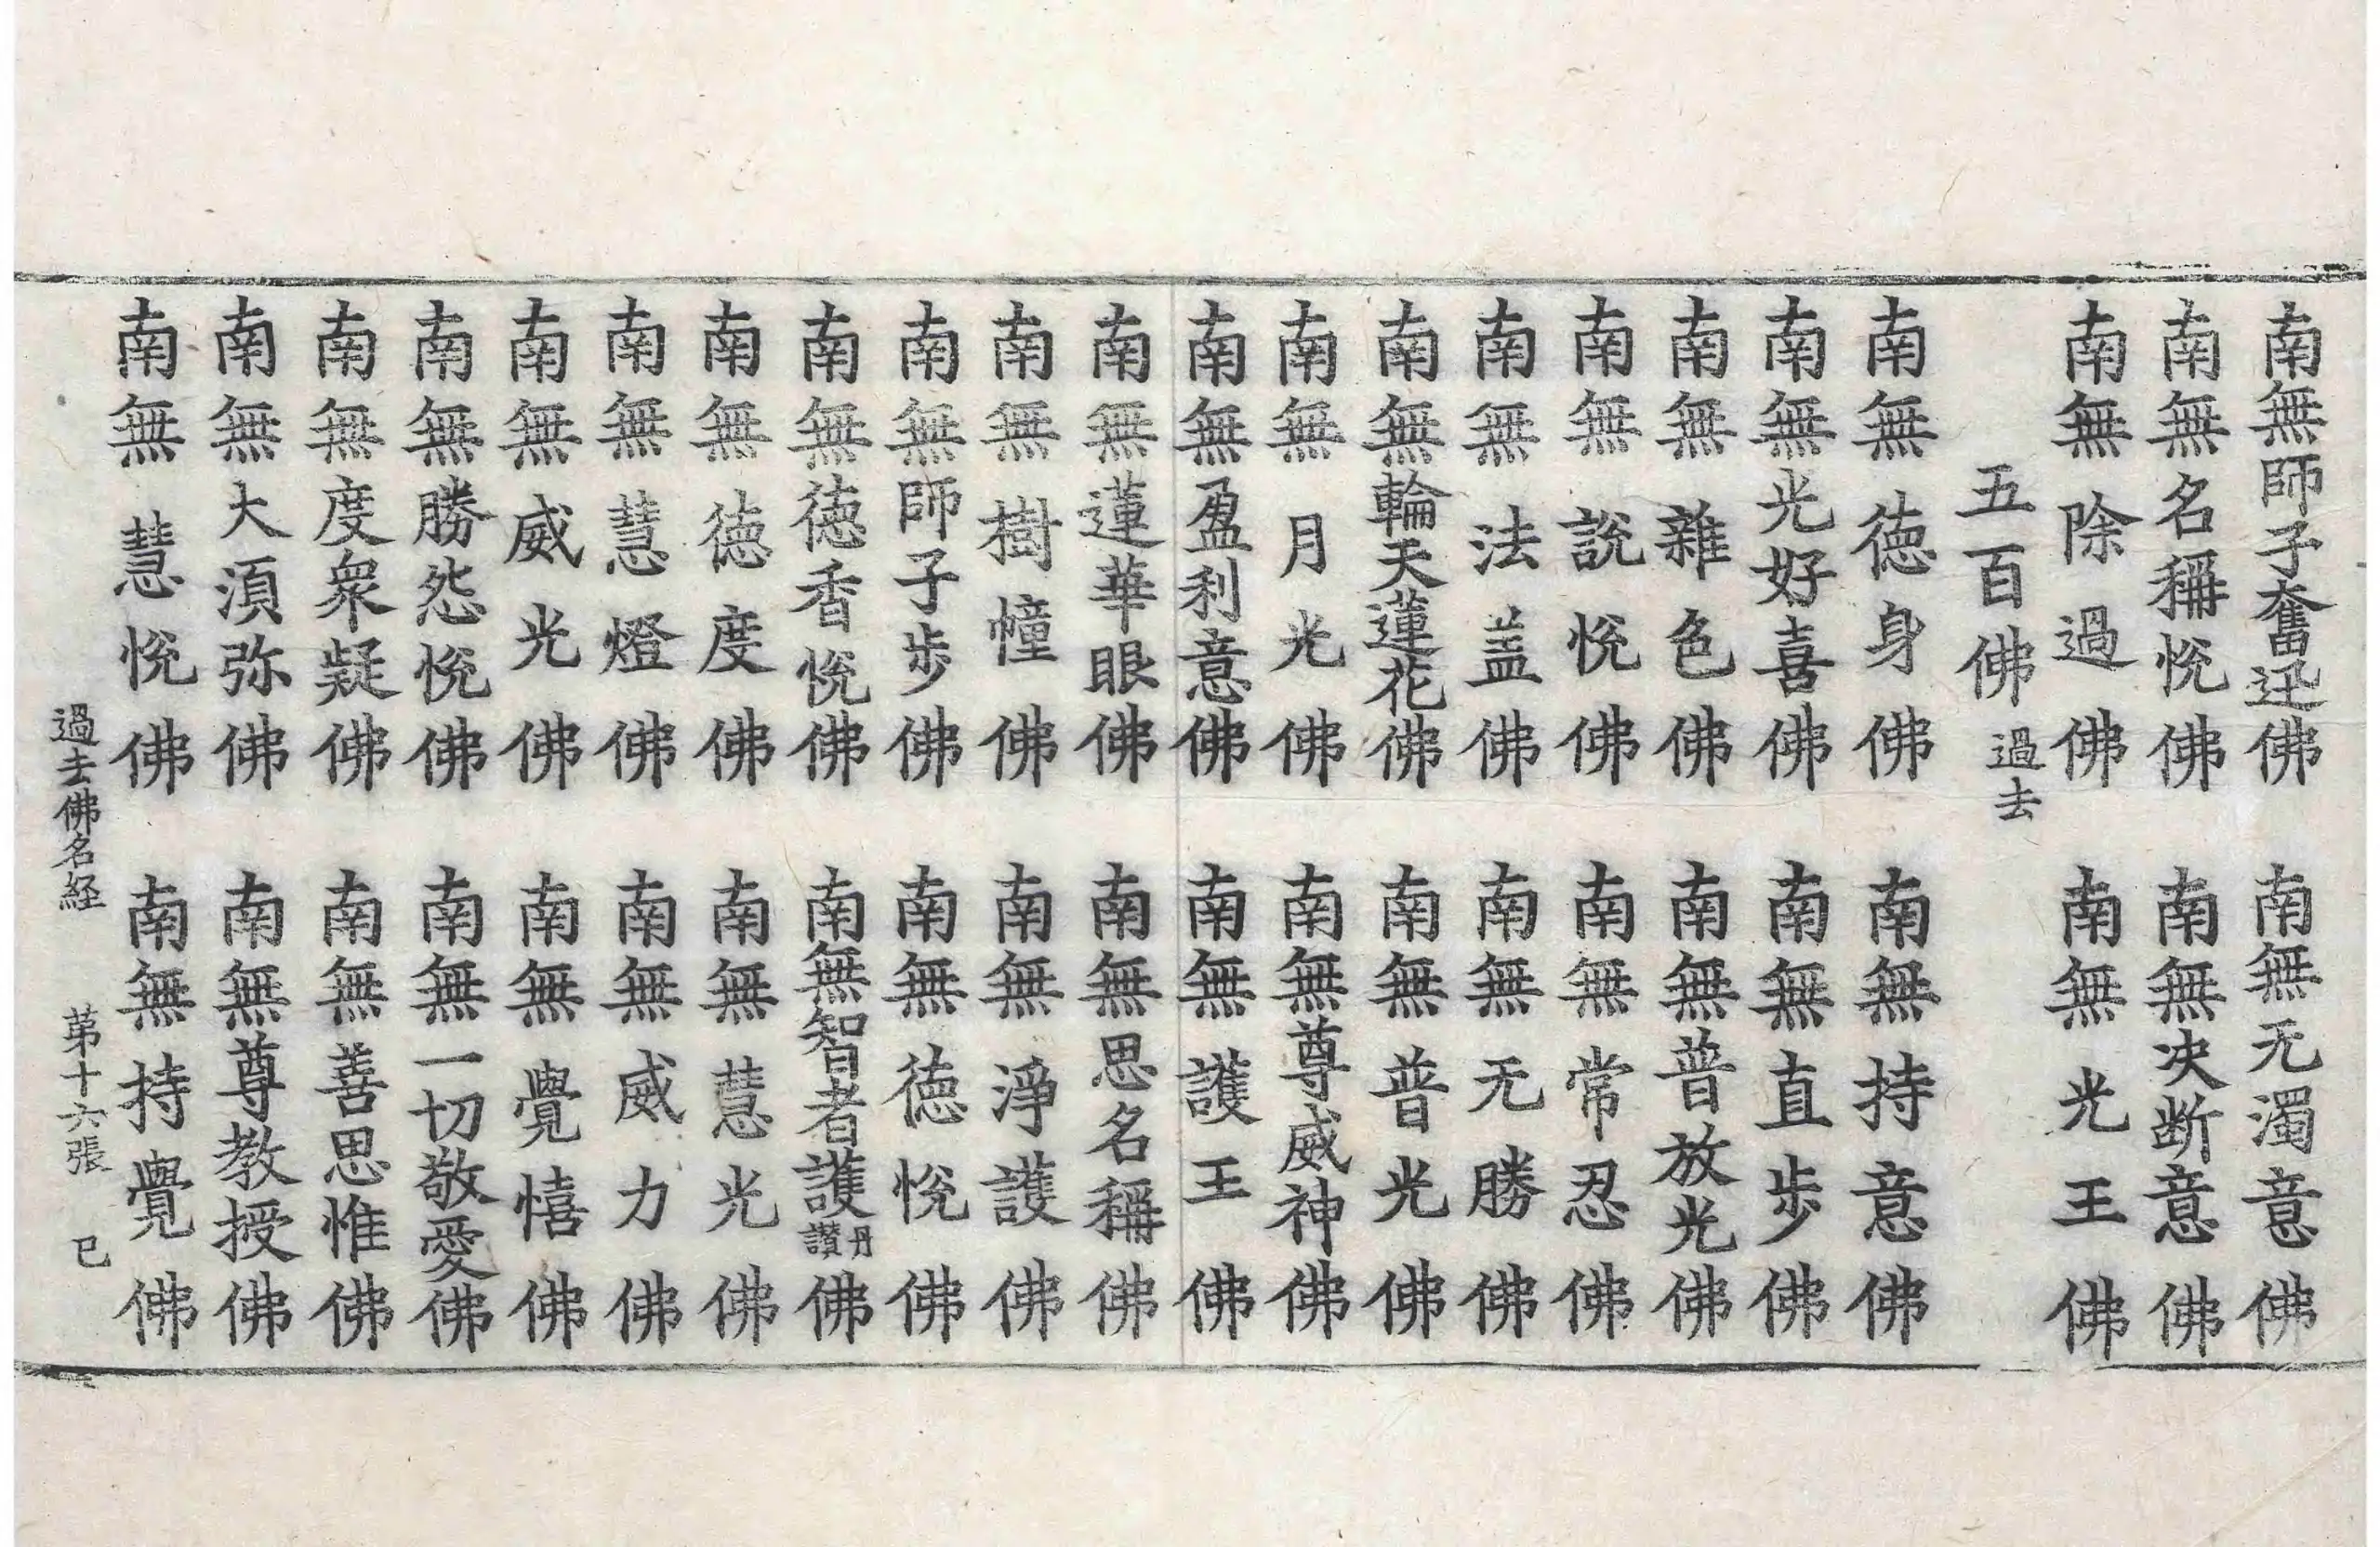 南無師子奮迅佛 南無无濁意佛
南無名稱悅佛 南無决断意佛
南無除過佛 南無光王佛
五百佛 過去
南無德身佛 南無持意佛
南無光好喜佛 南無直步佛
南無雜色佛 南無普放光佛
南無說悅佛 南無常忍佛
南無法盖佛 南無无勝佛
南無輪天蓮花佛 南無普光佛
南無月光佛 南無尊威神佛
南無盈利意佛 南無護王佛
南無蓮華眼佛 南無思名稱佛
南無樹幢佛 南無淨護佛
南無師子步佛 南無德悅佛
南無德香悅佛 南無智者護丹讚佛
南無德度佛 南無慧光佛
南無慧燈佛 南無威力佛
南無威光佛 南無覺憘佛
南無勝怨悅佛 南無一切敬愛佛
南無度衆疑佛 南無善思惟佛
南無大須弥佛 南無尊教授佛
南無慧悅佛 南無持覺佛
過去佛名経 苐十六張 已